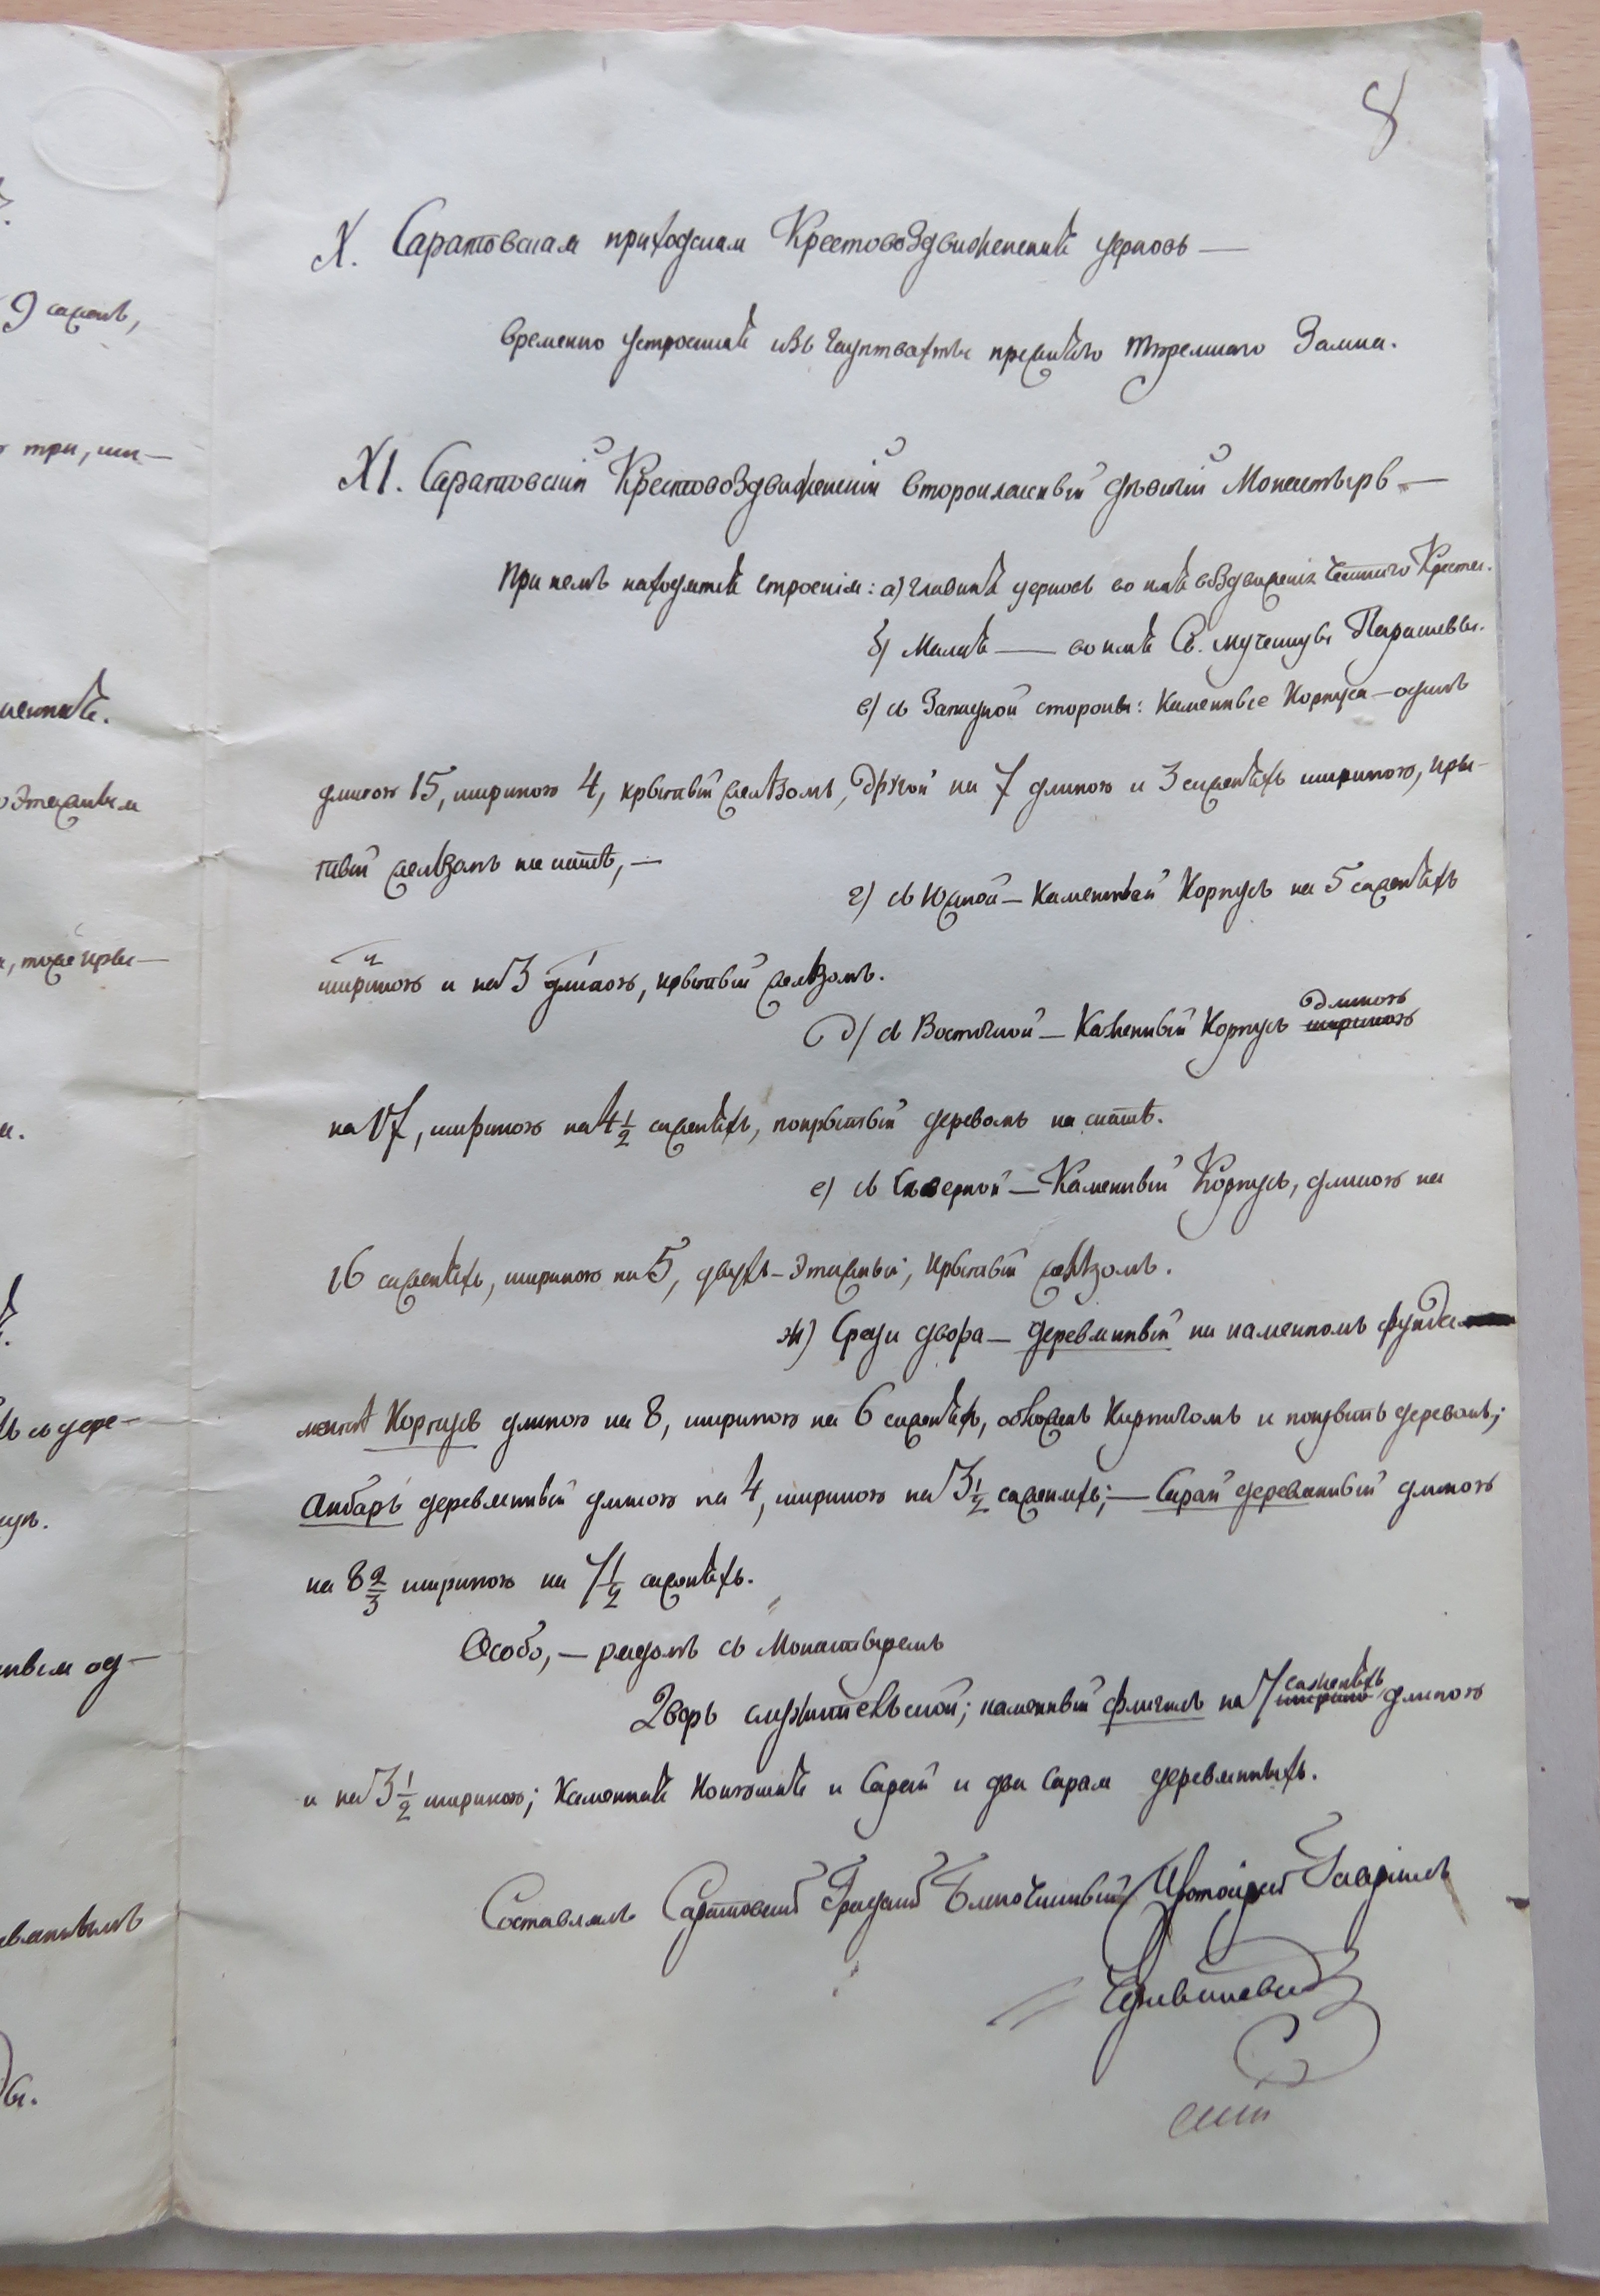 8
X. Саратовская приходская Крестовоздвиженская церковь —
временно устроенная изъ гауптвахты прежняго тюремнаго Замка.
XI. Саратовскій Крестовоздвиженскій второклассный дѣвичій Монастырь —
При немъ находятся строенія: а) главная церковь во имя воздвиженія Честнаго Креста.
б) Малая — во имя Св. мученицы Параскевы.
в) съ Западной стороны: Каменные Корпуса — одинъ
длиною 15, шириною 4, крытый желѣзомъ, другой на 7 длиною и 3 саженяхъ шириною, кры-
тый желѣзомъ же,—
г) съ Южной — Каменный Корпусъ на 5 саженяхъ
шириною и на 3 длиною, крытый желѣзомъ.
д) съ Восточной — Каменный Корпусъ длиною
шириною
на 17, шириною на 4 1/2 саженяхъ, покрытый деревомъ
е) съ Сѣверной — Каменный Корпусъ, длиною на
16 саженяхъ, шириною на 5, двухъ-этажный, крытый желѣзомъ.
ж) Среди двора — деревянный на каменномъ фунда
ментѣ Корпусъ длиною на 8, шириною на 6 саженяхъ, обложенъ Кирпичомъ и покрытъ деревомъ;
Анбаръ деревянный длиною на 4, шириною на 3 1/2 саженяхъ; — Сарай деревянный длиною
на 8 2/3 шириною на 7 1/2 саженяхъ.
Особо, — рядомъ съ Монастыремъ
Дворъ служительской; каменный флигель на 7 саженяхъ длиною
и на 3 1/2 шириною; Каменная Конюшня и Сарай и два Сарая деревянныхъ.
Составлялъ Саратовскій Градскій Благочинный Протоіерей Гавріилъ
Чернышевскій
9 сажень,
три, ши—
этажнымъ
, тоже кры—
ъ съ дере—
нымъ од—